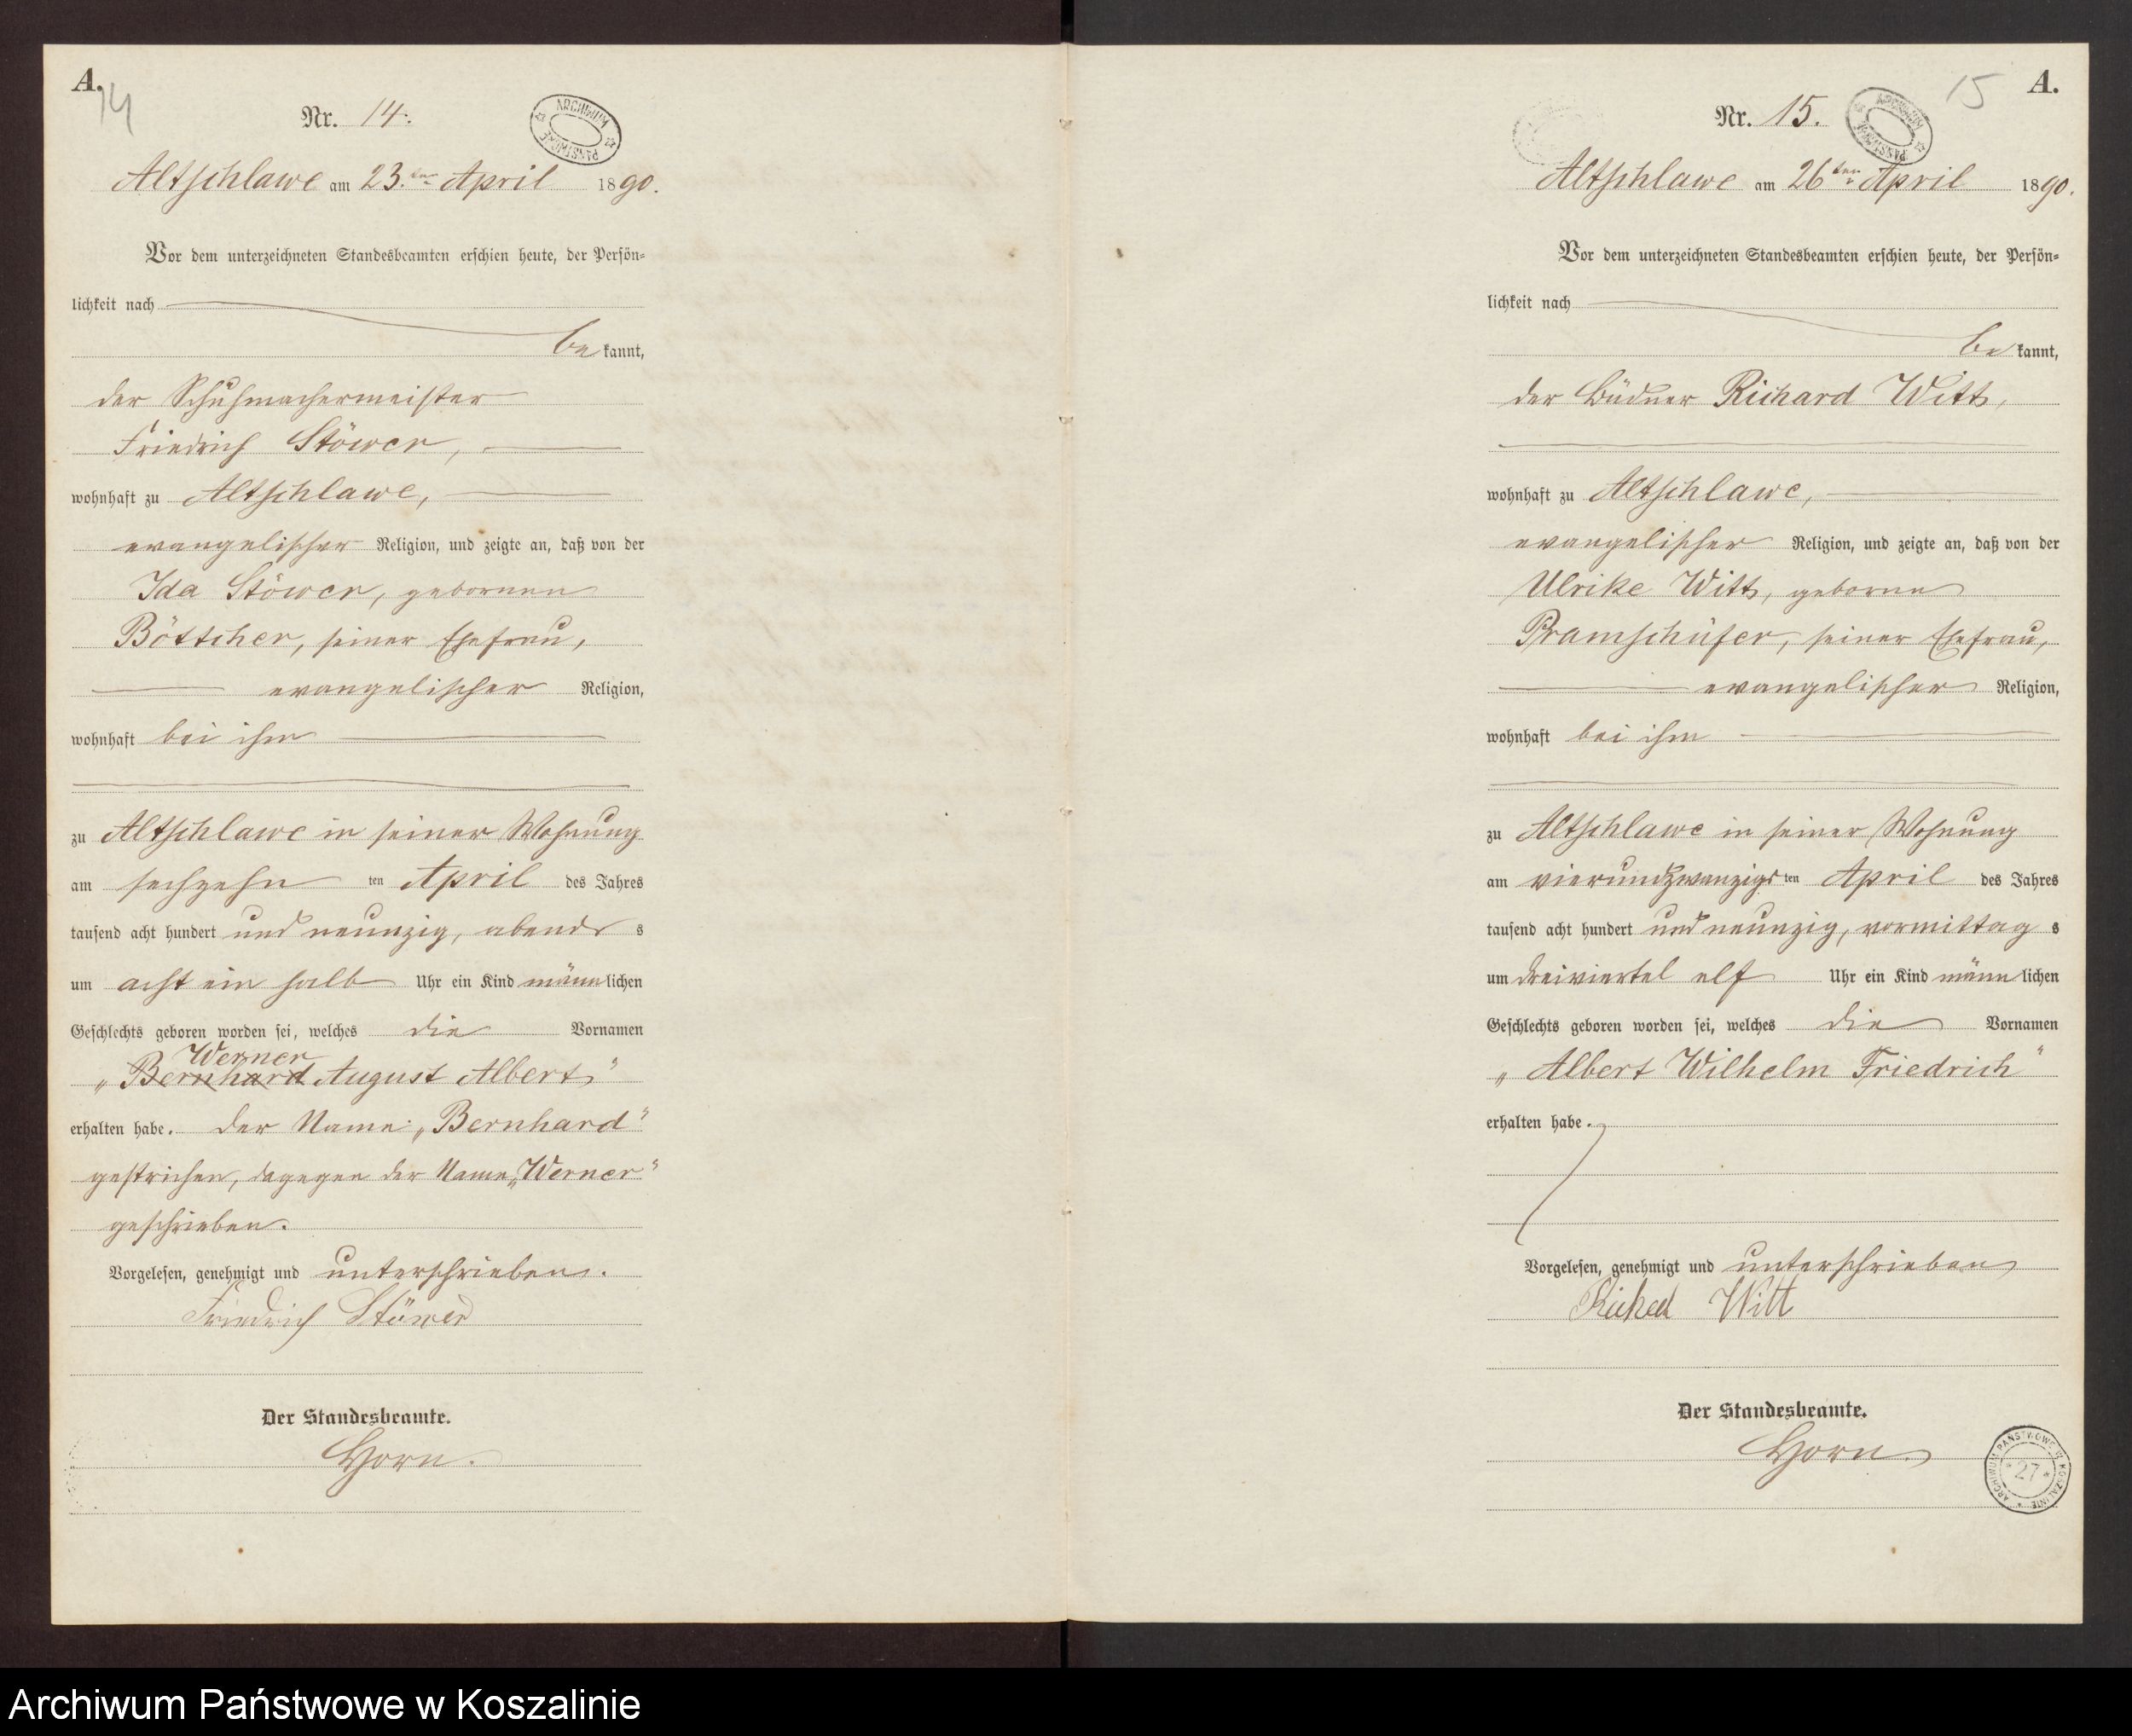 A.
14
Nr. 14.
ARCHIWUM PAŃSTWOWE
Altschlawe am 23.ten April 1890.
Vor dem unterzeichneten Standesbeamten erschien heute, der Persön-
lichkeit nach
bekannt,
der Schuhmachermeister
Friedrich Stöwer,
wohnhaft zu Altschlawe,
evangelischer Religion, und zeigte an, daß von der
Ida Stöwer, gebornen
Böttcher, seiner Ehefrau,
evangelischer Religion,
wohnhaft bei ihm
zu Altschlawe in seiner Wohnung
am sechzehn ten April des Jahres
tausend acht hundert und neunzig, abends s
um acht ein halb Uhr ein Kind männlichen
Geschlechts geboren worden sei, welches die Vornamen
Werner
„Bernhard August Albert"
erhalten habe. Der Name: „Bernhard"
gestrichen, dagegen der Name „Werner"
geschrieben.
Vorgelesen, genehmigt und unterschrieben.
Friedrich Stöwer
Der Standesbeamte.
Horn.
15
A.
Nr. 15.
ARCHIWUM PAŃSTWOWE
Altschlawe am 26ten April 1890.
Vor dem unterzeichneten Standesbeamten erschien heute, der Persön-
lichkeit nach
bekannt,
der Büdner Richard Witt,
wohnhaft zu Altschlawe,
evangelischer Religion, und zeigte an, daß von der
Ulrike Witt, geborne
Pramschüfer, seiner Ehefrau,
evangelischer Religion,
wohnhaft bei ihm
zu Altschlawe in seiner Wohnung
am vierundzwanzigs ten April des Jahres
tausend acht hundert und neunzig, vormittag s
um dreiviertel elf Uhr ein Kind männlichen
Geschlechts geboren worden sei, welches die Vornamen
„Albert Wilhelm Friedrich"
erhalten habe.
Vorgelesen, genehmigt und unterschrieben
Richard Witt
Der Standesbeamte.
Horn.
ARCHIWUM PAŃSTWOWE W KOSZALINIE
* 27 *
Archiwum Państwowe w Koszalinie